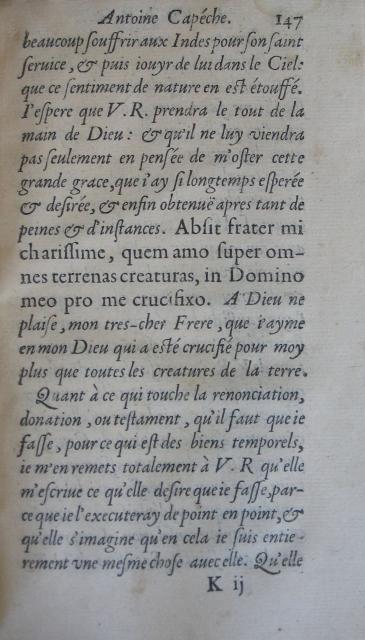 Antoine Capéche. 147
beaucoup souffrir aux Indes pour son saint
service, & puis iouyr de lui dans le Ciel:
que ce sentiment de nature en est étouffé.
I'espere que V. R. prendra le tout de la
main de Dieu: & qu'il ne luy viendra
pas seulement en pensée de m'oster cette
grande grace, que i'ay si longtemps esperée
& desirée, & enfin obtenuë apres tant de
peines & d'instances. Absit frater mi
charissime, quem amo super om-
nes terrenas creaturas, in Domino
meo pro me crucifixo. A Dieu ne
plaise, mon tres-cher Frere, que i'ayme
en mon Dieu qui a esté crucifié pour moy
plus que toutes les creatures de la terre.
Quant à ce qui touche la renonciation,
donation, ou testament, qu'il faut que ie
fasse, pour ce qui est des biens temporels,
ie m'en remets totalement à V. R qu'elle
m'escriue ce qu'elle desire que ie fasse, par-
ce que ie l'executeray de point en point, &
qu'elle s'imagine qu'en cela ie suis entie-
rement vne mesme chose auec elle. Qu'elle
K ij